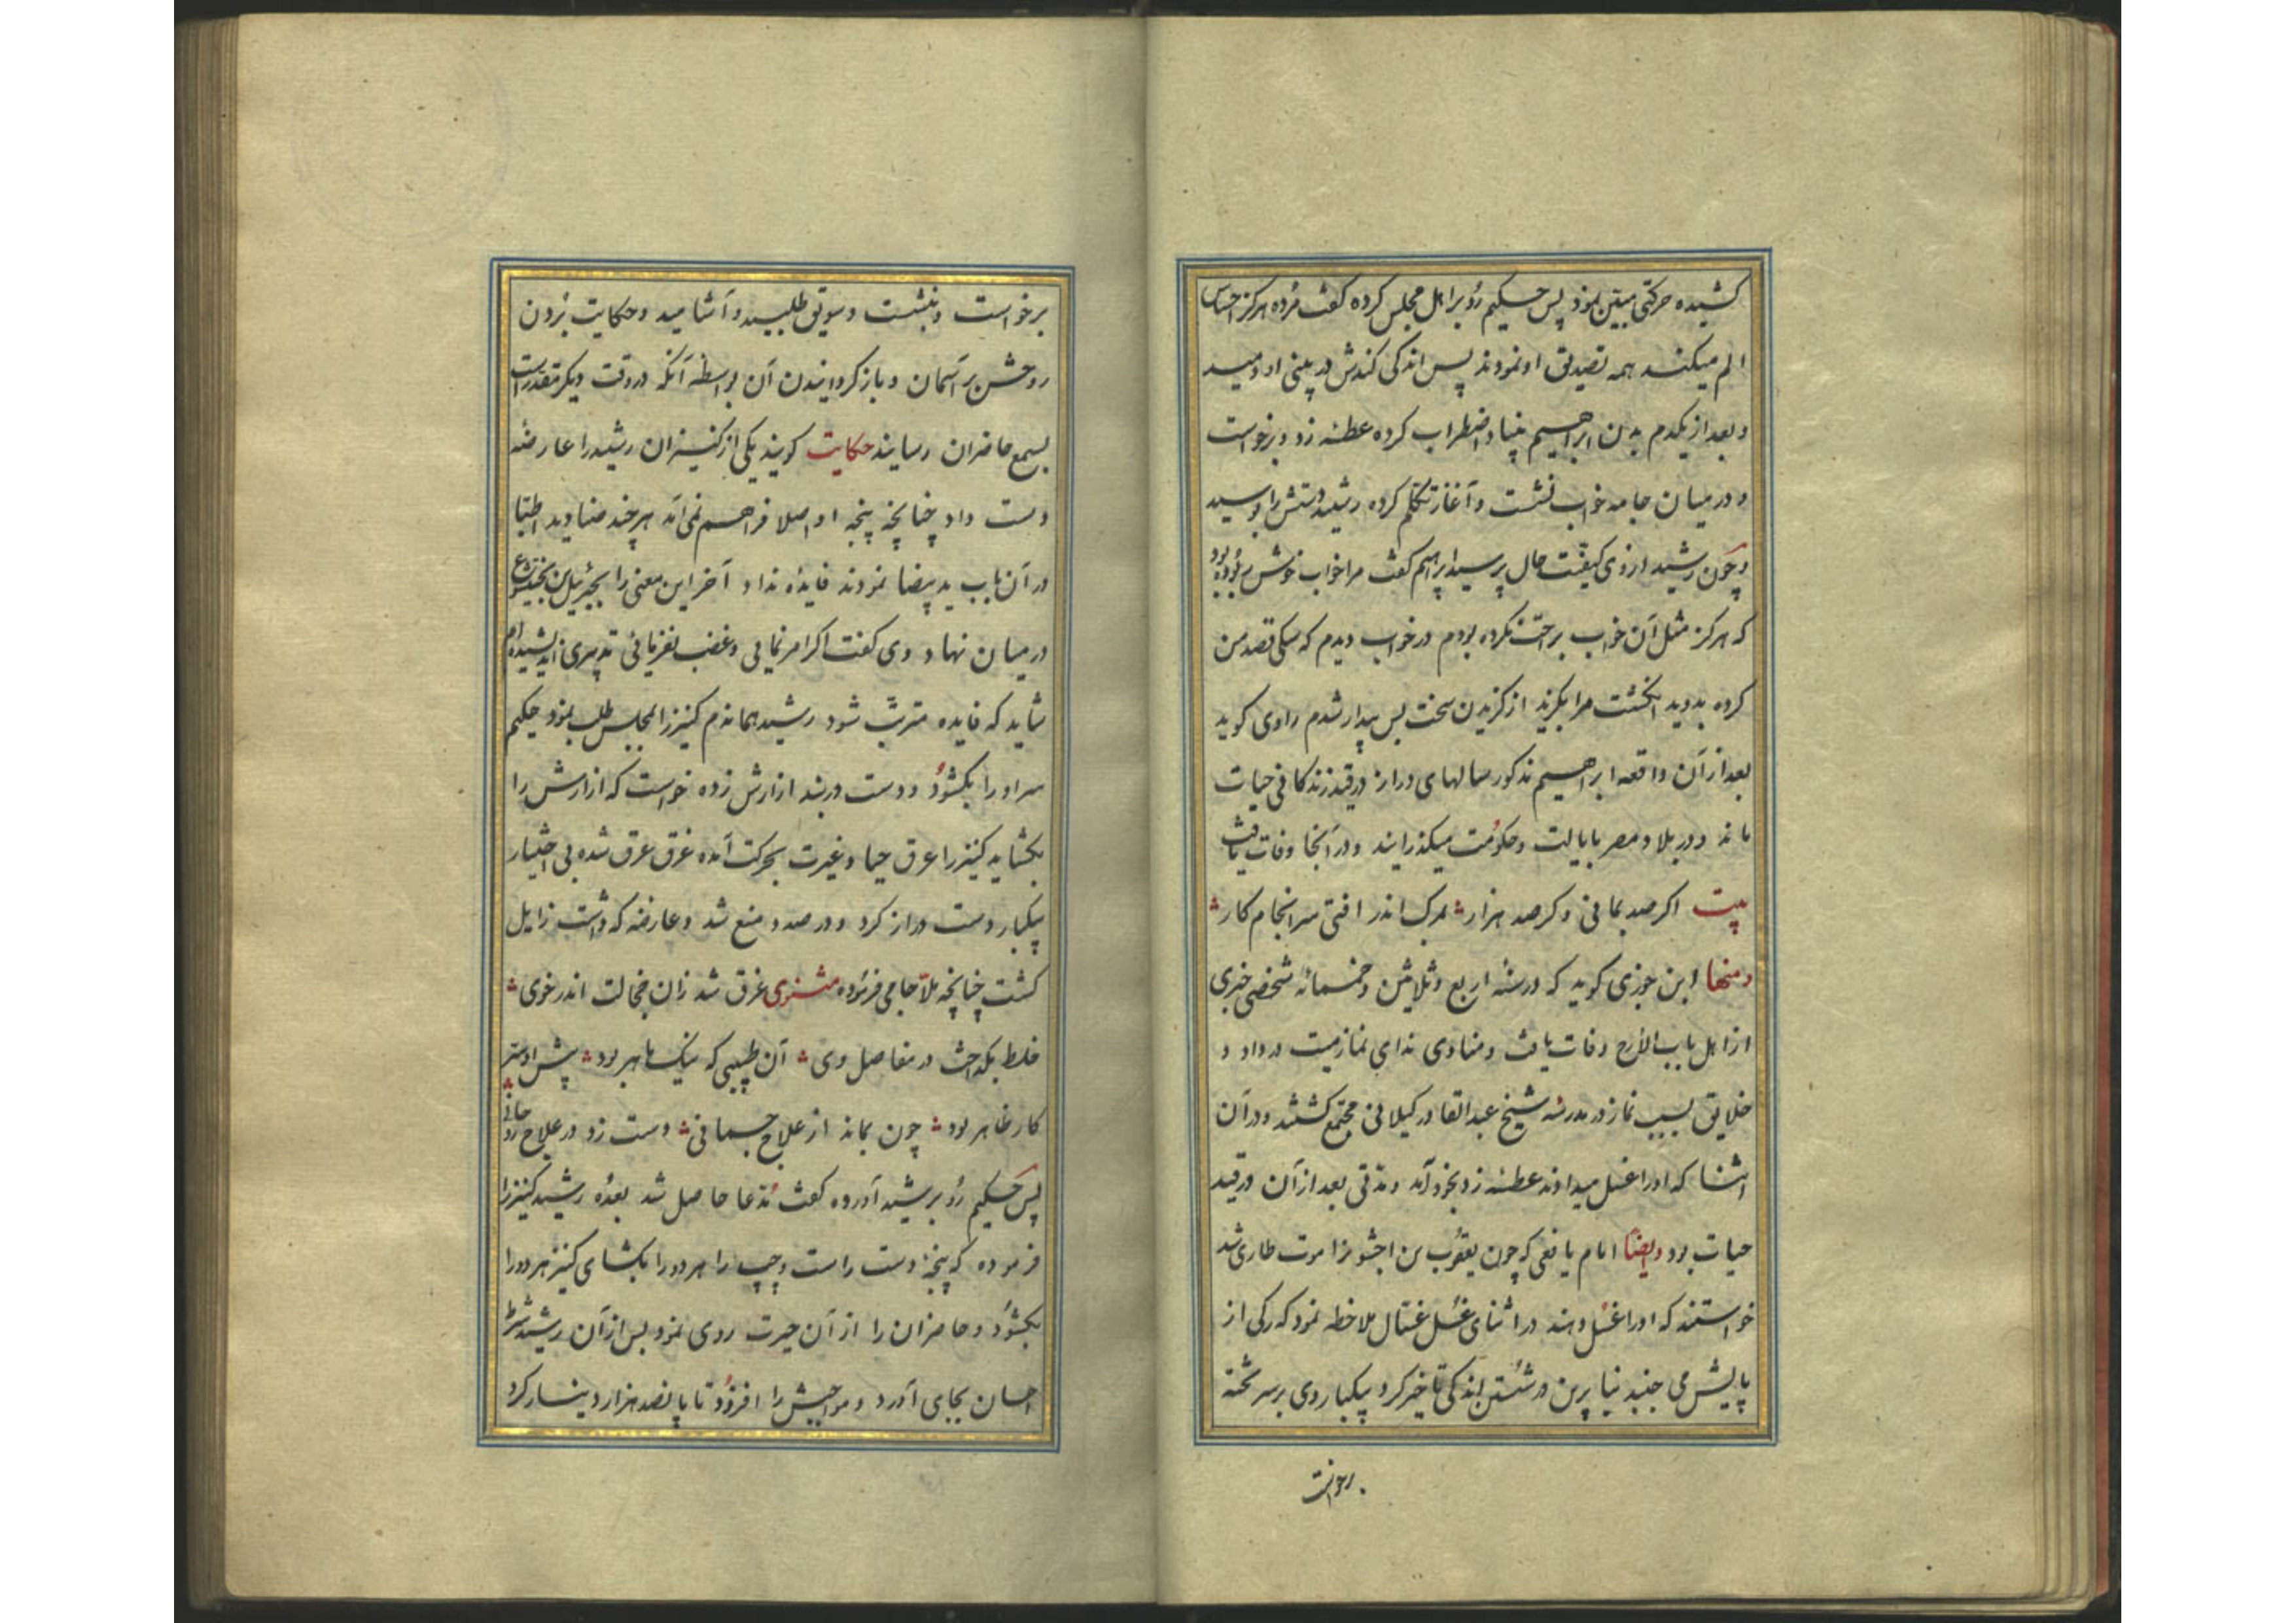 کشیده حرکتی مبین نمود پس حکیم رو بر اهل مجلس کرده کفت مرده هرکز احساس
الم میکند همه تصدیق او نمودند پس اندکی کندش در بینی او دمید
و بعد از یکدم بدن ابراهیم بنیاد اضطراب کرده عطسه زد و برخواست
و در میان جامه خواب نشست و آغاز تکلم کرده رشید دستش را بوسید
و چون رشید از وی کیفیت حال پرسید ابراهیم کفت مرا خواب خوش ربوده بود
که هرکز مثل آن خواب براحت نکرده بودم در خواب دیدم که سکی قصد من
کرده بدوید انکشت مرا بکزید از کزیدن سخت پس بیدار شدم راوی کوید
بعد از آن واقعه ابراهیم مذکور سالهای دراز در قید زندکانی حیات
ماند و در بلاد مصر بایالت و حکومت میکذرایند و در آنجا وفات یافت
بیت اکر صد بمانی و کر صد هزار بمرک اندر افتی سرانجام کار
و منها ابن جوزی کوید که در سنه اربع و ثلاثین و خمسمائه شخصی خبری
از اهل باب الأزج وفات یافت و منادی ندای نماز میت در داد و
خلایق بسبب نماز در مدرسه شیخ عبد القادر کیلانی مجتمع کشتند و در آن
اثنا که او را غسل میدادند عطسه زد بخود آمد و مدتی بعد از آن در قید
حیات بود و ایضا امام یافعی که چون یعقوب بن را موت طاری شد
خواستند که او را غسل دهند در اثنای غسل غسال ملاحظه نمود که رکی از
پایش می جنبد بنا برین در شستن اندکی تاخیر کرد یکبار وی بر سر تخته
برخواست
برخواست و بنشست و سویق طلبید و آشامید و حکایت بردن
روحش بر آسمان و باز کردانیدن آن بواسطه آنکه در وقت دیکر مقدر است
بسمع حاضران رسانید حکایت کویند یکی از کنیزان رشید را عارضه
دست داد چنانچه پنجه او اصلا فراهم نمی آمد هر چند صنادید اطبا
در آن باب ید بیضا نمودند فایده نداد آخر این معنی را بجبرئیل بن بختیشوع
در میان نهاد وی کفت اکر امر نمایی و غضب نفرمائی تدبیری اندیشیده ام
شاید که فایده مترتب شود رشید هماندم کنیز را بمجلس طلب نمود حکیم
سر او را بکشود و دست در بند ازارش زده خواست که ازارش را
بکشاید کنیز را عرق حیا و غیرت بحرکت آمده غرق عرق شده بی اختیار
یکبار دست دراز کرد و در صدد منع شد و عارضه که داشت زایل
کشت چنانچه ملا جامی فرموده مثنوی غرق شد زان خجالت اندر خوی
خلط بکداخت در مفاصل وی آن طبیبی که نیک ماهر بود پیش او ستر
کار ظاهر بود چون بماند از علاج جسمانی دست زد در علاج روحانی
پس حکیم رو برشید آورده کفت مدعا حاصل شد بعده رشید کنیز را
فرموده که پنجه دست راست و چپ را هر دو را بکشای کنیز هر دو را
بکشود و حاضران را از آن حیرت روی نمود پس از آن رشید شرط
احسان بجای آورد و مواجبش را افزود تا پانصد هزار دینار کرد